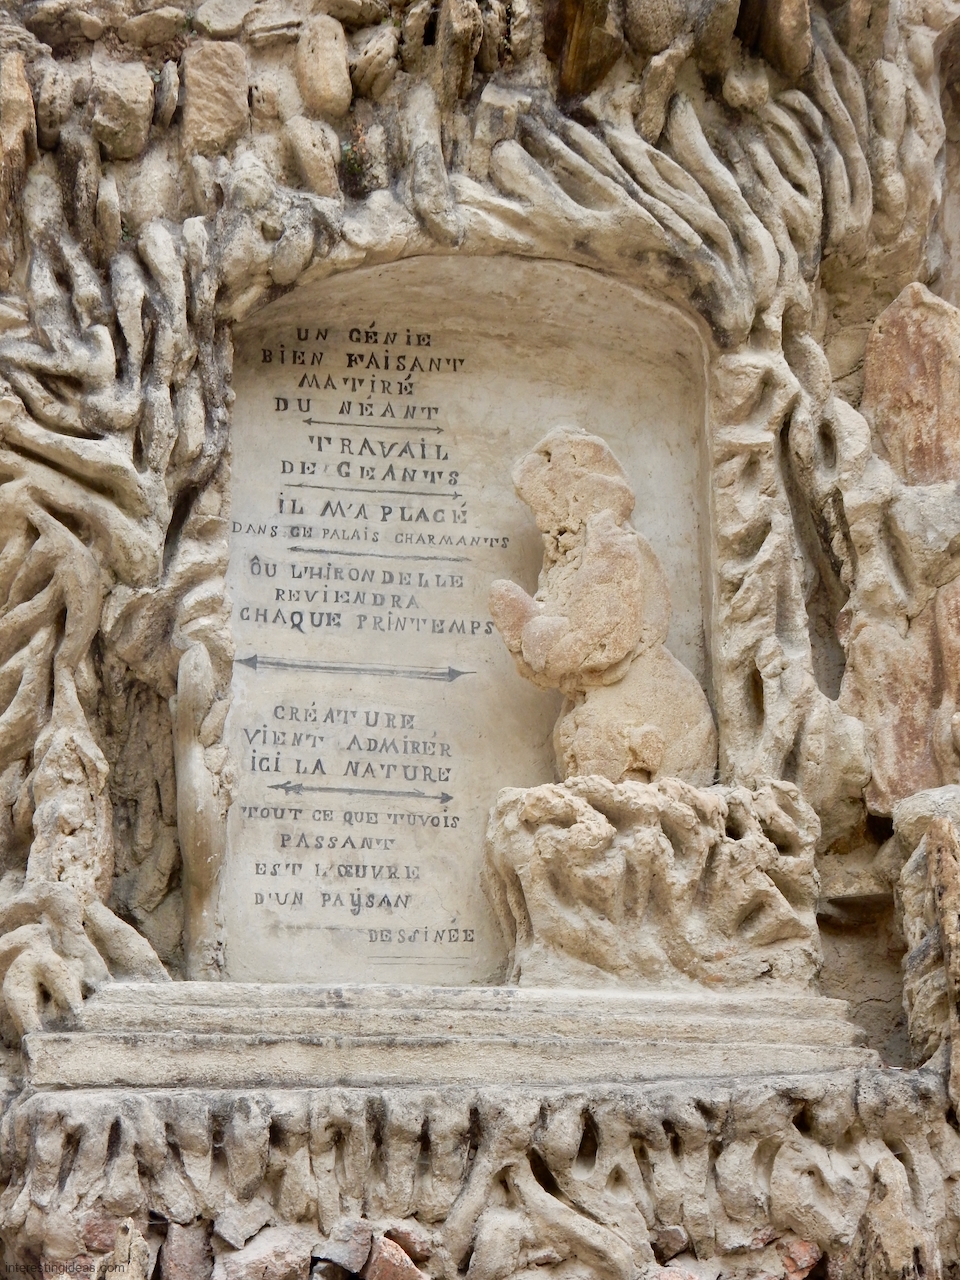 UN GÉNiE
BiEN FAiSANT
MATiRÉ
DU NÉANT
TRAVAiL
DE GEANTS
iL M'A PLACÉ
DANS CE PALAiS CHARMANTS
ÔU L'HiRONDELLE
REViENDRA
CHAQUE PRiNTEMPS
CRÉATURE
ViENT ADMiRÉR
iCi LA NATURE
TOUT CE QUE TUVOiS
PASSANT
EST L'ŒUVRE
D'UN PAŸSAN
DESSiNÉE
interestingideas.com